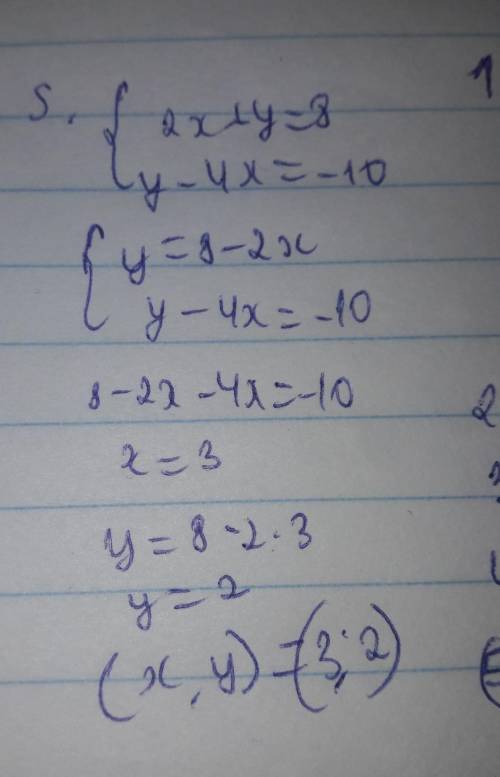 5. { 2x+y=8
y-4x=-10
{ y=8-2x
y-4x=-10
8-2x-4x=-10
x=3
y=8-2·3
y=2
(x,y)=(3;2)
1
2